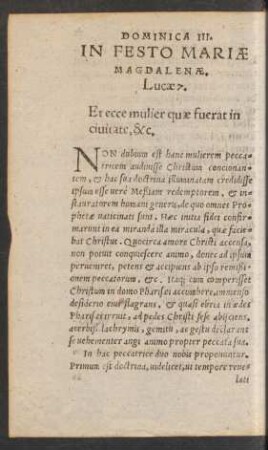 DOMINICA III.
IN FESTO MARIÆ
MAGDALENÆ.
Lucæ 7.
Et ecce mulier quæ fuerat in
ciuitate, &c.
NON dubium est hanc mulierem pecca-
tricem audiuisse Christum concionan-
tem, & hac sua doctrina illuminatam credidisse
ipsum esse verè Messiam redemptorem, & in-
stauratorem humani generis, de quo omnes Pro-
phetæ vaticinati sunt. Hæc initia fidei confir-
marunt in ea miranda illa miracula, quæ facie-
bat Christus. Quocirca amore Christi accensa,
non potuit conquiescere animo, donec ad ipsum
perueniret, petens & accipiens ab ipso remissi-
onem peccatorum, &c. Itaq; cum comperisset
Christum in domo Pharisæi accumbere, immenso
desiderio eius flagrans, & quasi ebria in ædes
Pharisæi irruit, ad pedes Christi sese abijciens,
acerbiss. lachrymis, gemitu, ac gestu declarans
se vehementer angi animo propter peccata sua.
In hac peccatrice duo nobis proponuntur.
Primum est doctrina, videlicet, ut tempore reue-
lati